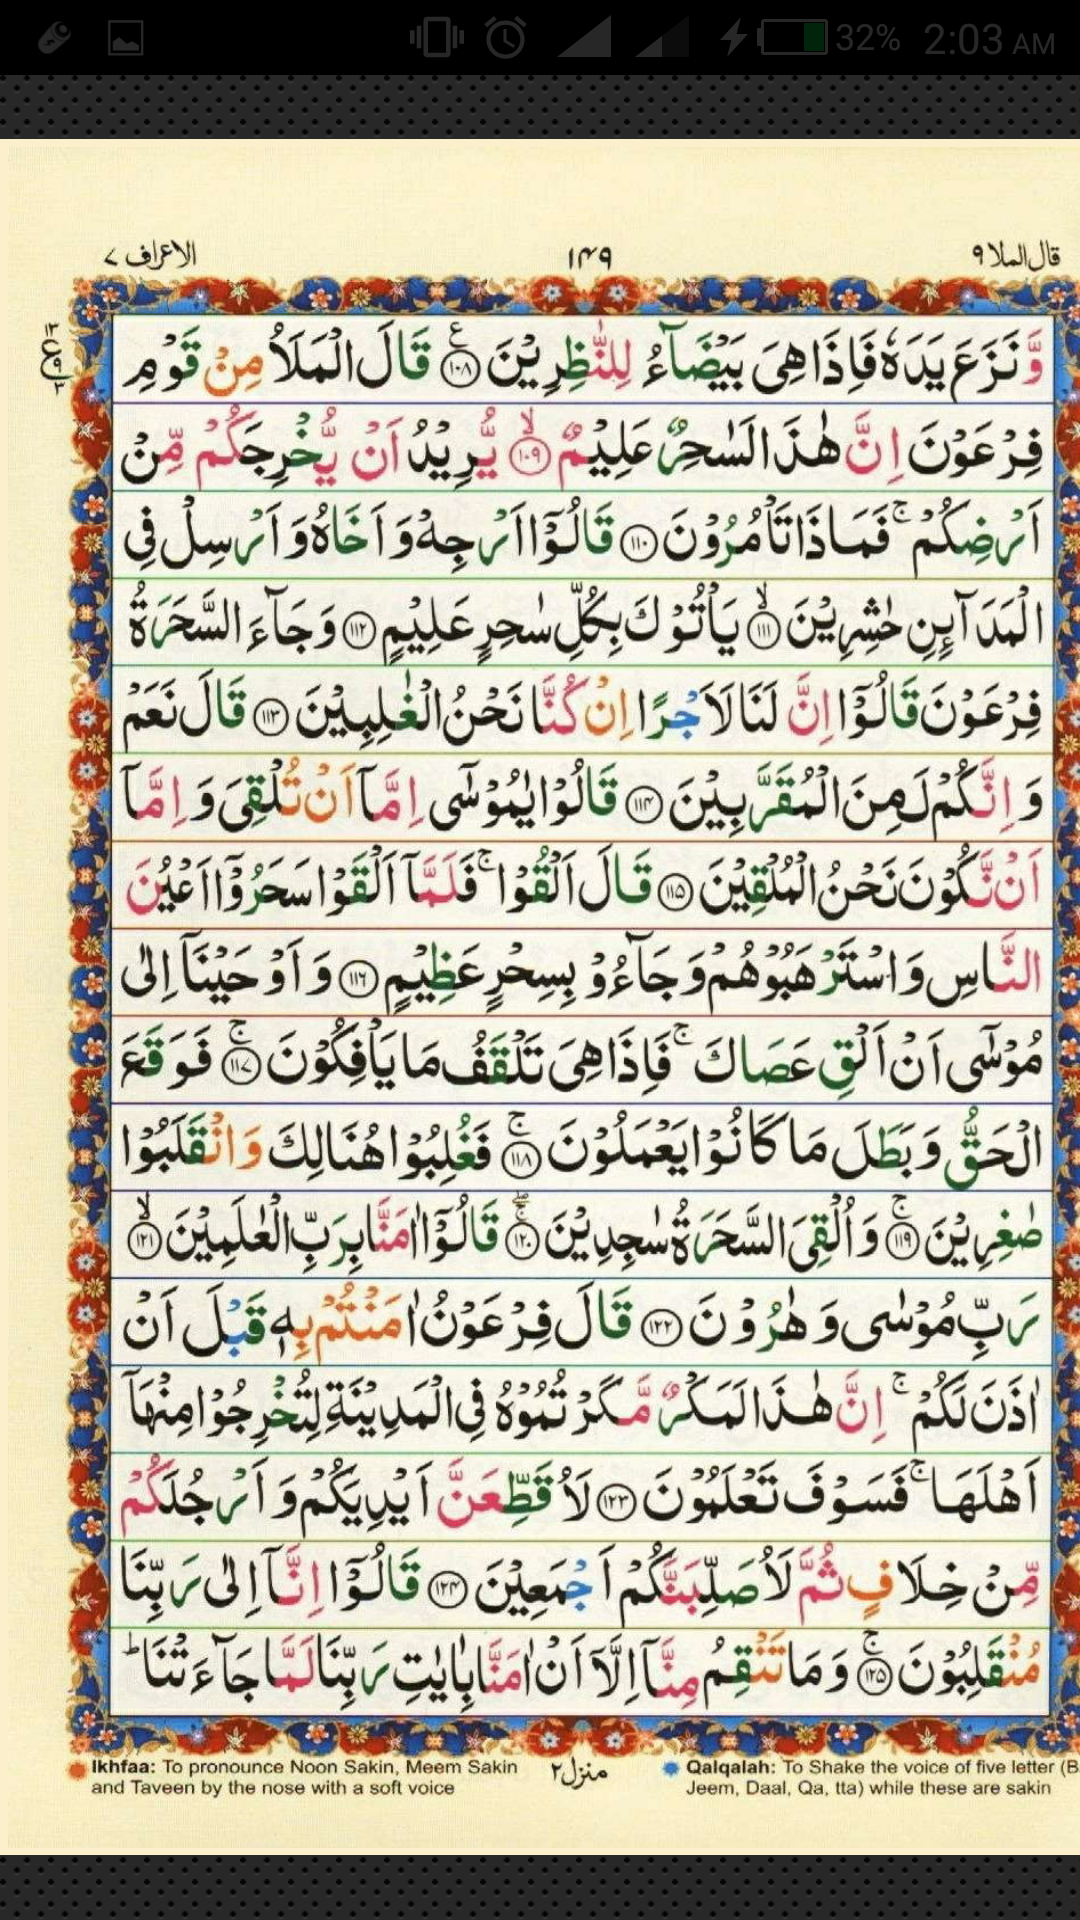 32% 2:03 AM
قال الملا ٩
١٤٩
الاعراف ٧
وَّ نَزَعَ يَدَهٗ فَاِذَا هِىَ بَيْضَآءُ لِلنّٰظِرِيْنَ ۝١٠٨ ع قَالَ الْمَلَاُ مِنْ قَوْمِ
١٣
ع
٩
٣
فِرْعَوْنَ اِنَّ هٰذَا لَسٰحِرٌ عَلِيْمٌ ۝١٠٩ۙ يُّرِيْدُ اَنْ يُّخْرِجَكُمْ مِّنْ
اَرْضِكُمْ ۚ فَمَاذَا تَاْمُرُوْنَ ۝١١٠ قَالُوْۤا اَرْجِهْ وَ اَخَاهُ وَ اَرْسِلْ فِى
الْمَدَآئِنِ حٰشِرِيْنَ ۝١١١ۙ يَاْتُوْكَ بِكُلِّ سٰحِرٍ عَلِيْمٍ ۝١١٢ وَ جَآءَ السَّحَرَةُ
فِرْعَوْنَ قَالُوْۤا اِنَّ لَنَا لَاَجْرًا اِنْ كُنَّا نَحْنُ الْغٰلِبِيْنَ ۝١١٣ قَالَ نَعَمْ
وَ اِنَّكُمْ لَمِنَ الْمُقَرَّبِيْنَ ۝١١٤ قَالُوْا يٰمُوْسٰٓى اِمَّاۤ اَنْ تُلْقِىَ وَ اِمَّاۤ
اَنْ نَّكُوْنَ نَحْنُ الْمُلْقِيْنَ ۝١١٥ قَالَ اَلْقُوْا ۚ فَلَمَّاۤ اَلْقَوْا سَحَرُوْۤا اَعْيُنَ
النَّاسِ وَ اسْتَرْهَبُوْهُمْ وَ جَآءُوْ بِسِحْرٍ عَظِيْمٍ ۝١١٦ وَ اَوْحَيْنَاۤ اِلٰى
مُوْسٰٓى اَنْ اَلْقِ عَصَاكَ ۚ فَاِذَا هِىَ تَلْقَفُ مَا يَاْفِكُوْنَ ۝١١٧ۚ فَوَقَعَ
الْحَقُّ وَ بَطَلَ مَا كَانُوْا يَعْمَلُوْنَ ۝١١٨ۚ فَغُلِبُوْا هُنَالِكَ وَ انْقَلَبُوْا
صٰغِرِيْنَ ۝١١٩ۚ وَ اُلْقِىَ السَّحَرَةُ سٰجِدِيْنَ ۝١٢٠ قَالُوْۤا اٰمَنَّا بِرَبِّ الْعٰلَمِيْنَ ۝١٢١ۙ
رَبِّ مُوْسٰى وَ هٰرُوْنَ ۝١٢٢ قَالَ فِرْعَوْنُ اٰمَنْتُمْ بِهٖ قَبْلَ اَنْ
اٰذَنَ لَكُمْ ۚ اِنَّ هٰذَا لَمَكْرٌ مَّكَرْتُمُوْهُ فِى الْمَدِيْنَةِ لِتُخْرِجُوْا مِنْهَاۤ
اَهْلَهَا ۚ فَسَوْفَ تَعْلَمُوْنَ ۝١٢٣ لَاُقَطِّعَنَّ اَيْدِيَكُمْ وَ اَرْجُلَكُمْ
مِّنْ خِلَافٍ ثُمَّ لَاُصَلِّبَنَّكُمْ اَجْمَعِيْنَ ۝١٢٤ قَالُوْۤا اِنَّاۤ اِلٰى رَبِّنَا
مُنْقَلِبُوْنَ ۝١٢٥ۚ وَ مَا تَنْقِمُ مِنَّاۤ اِلَّاۤ اَنْ اٰمَنَّا بِاٰيٰتِ رَبِّنَا لَمَّا جَآءَتْنَا ؕ
Ikhfaa: To pronounce Noon Sakin, Meem Sakin
and Taveen by the nose with a soft voice
منزل ٢
Qalqalah: To Shake the voice of five letter (B
Jeem, Daal, Qa, tta) while these are sakin